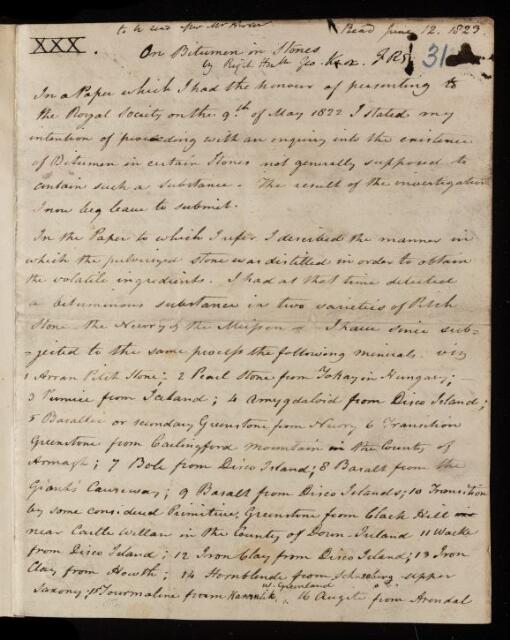 to be read after Mr
Read June 12. 1823
XXX.
31
On Bitumen in Stones
by Right Honble Geo. Knox. F.R.S.
In a Paper which I had the honour of presenting to
the Royal Society on the 9th of May 1822 I stated my
intention of proceeding with an enquiry into the existence
of Bitumen in certain Stones not generally supposed to
contain such a substance. The result of the investigation
I now beg leave to submit.
In the Paper to which I refer I described the manner in
which the pulverized stone was distilled in order to obtain
the volatile ingredients. I had at that time detected
a bituminous substance in two varieties of Pitch
Stone the Newry & the Meissen - I have since sub-
-jected to the same process the following minerals viz
1 Arran Pitch Stone; 2 Pearl Stone from Tokay in Hungary;
3 Pumice from Iceland; 4 Amygdaloid from Disco Island;
5 Basaltic or secondary Greenstone from Newry 6 Transition
Greenstone from Carlingford Mountain in the County of
Armagh; 7 Bole from Disco Island; 8 Basalt from the
Giant's Causeway; 9 Basalt from Disco Islands; 10 Transition
by some considered Primitive, Greenstone from Slack Hill
near Castle Wellan in the County of Down Ireland 11 Wacke
from Disco Island; 12 Iron Clay from Disco Island; 13 Iron
Clay from Howth; 14 Hornblende from Schneeberg upper
Saxony; 15 Tourmaline from Karrulik W. Greenland 16 Augite from Arendal